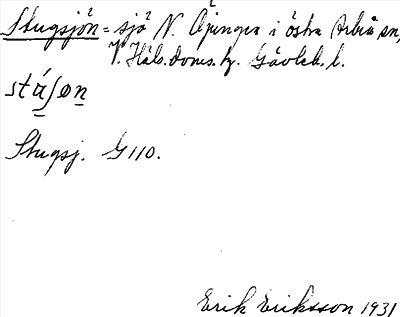 Stugsjön = sjö N. Öjungen i östra Arbrå sn,
V. Häls. doms. hg. Gävleb. l.
stásøn
Stugsj. G 110.
Erik Eriksson 1931